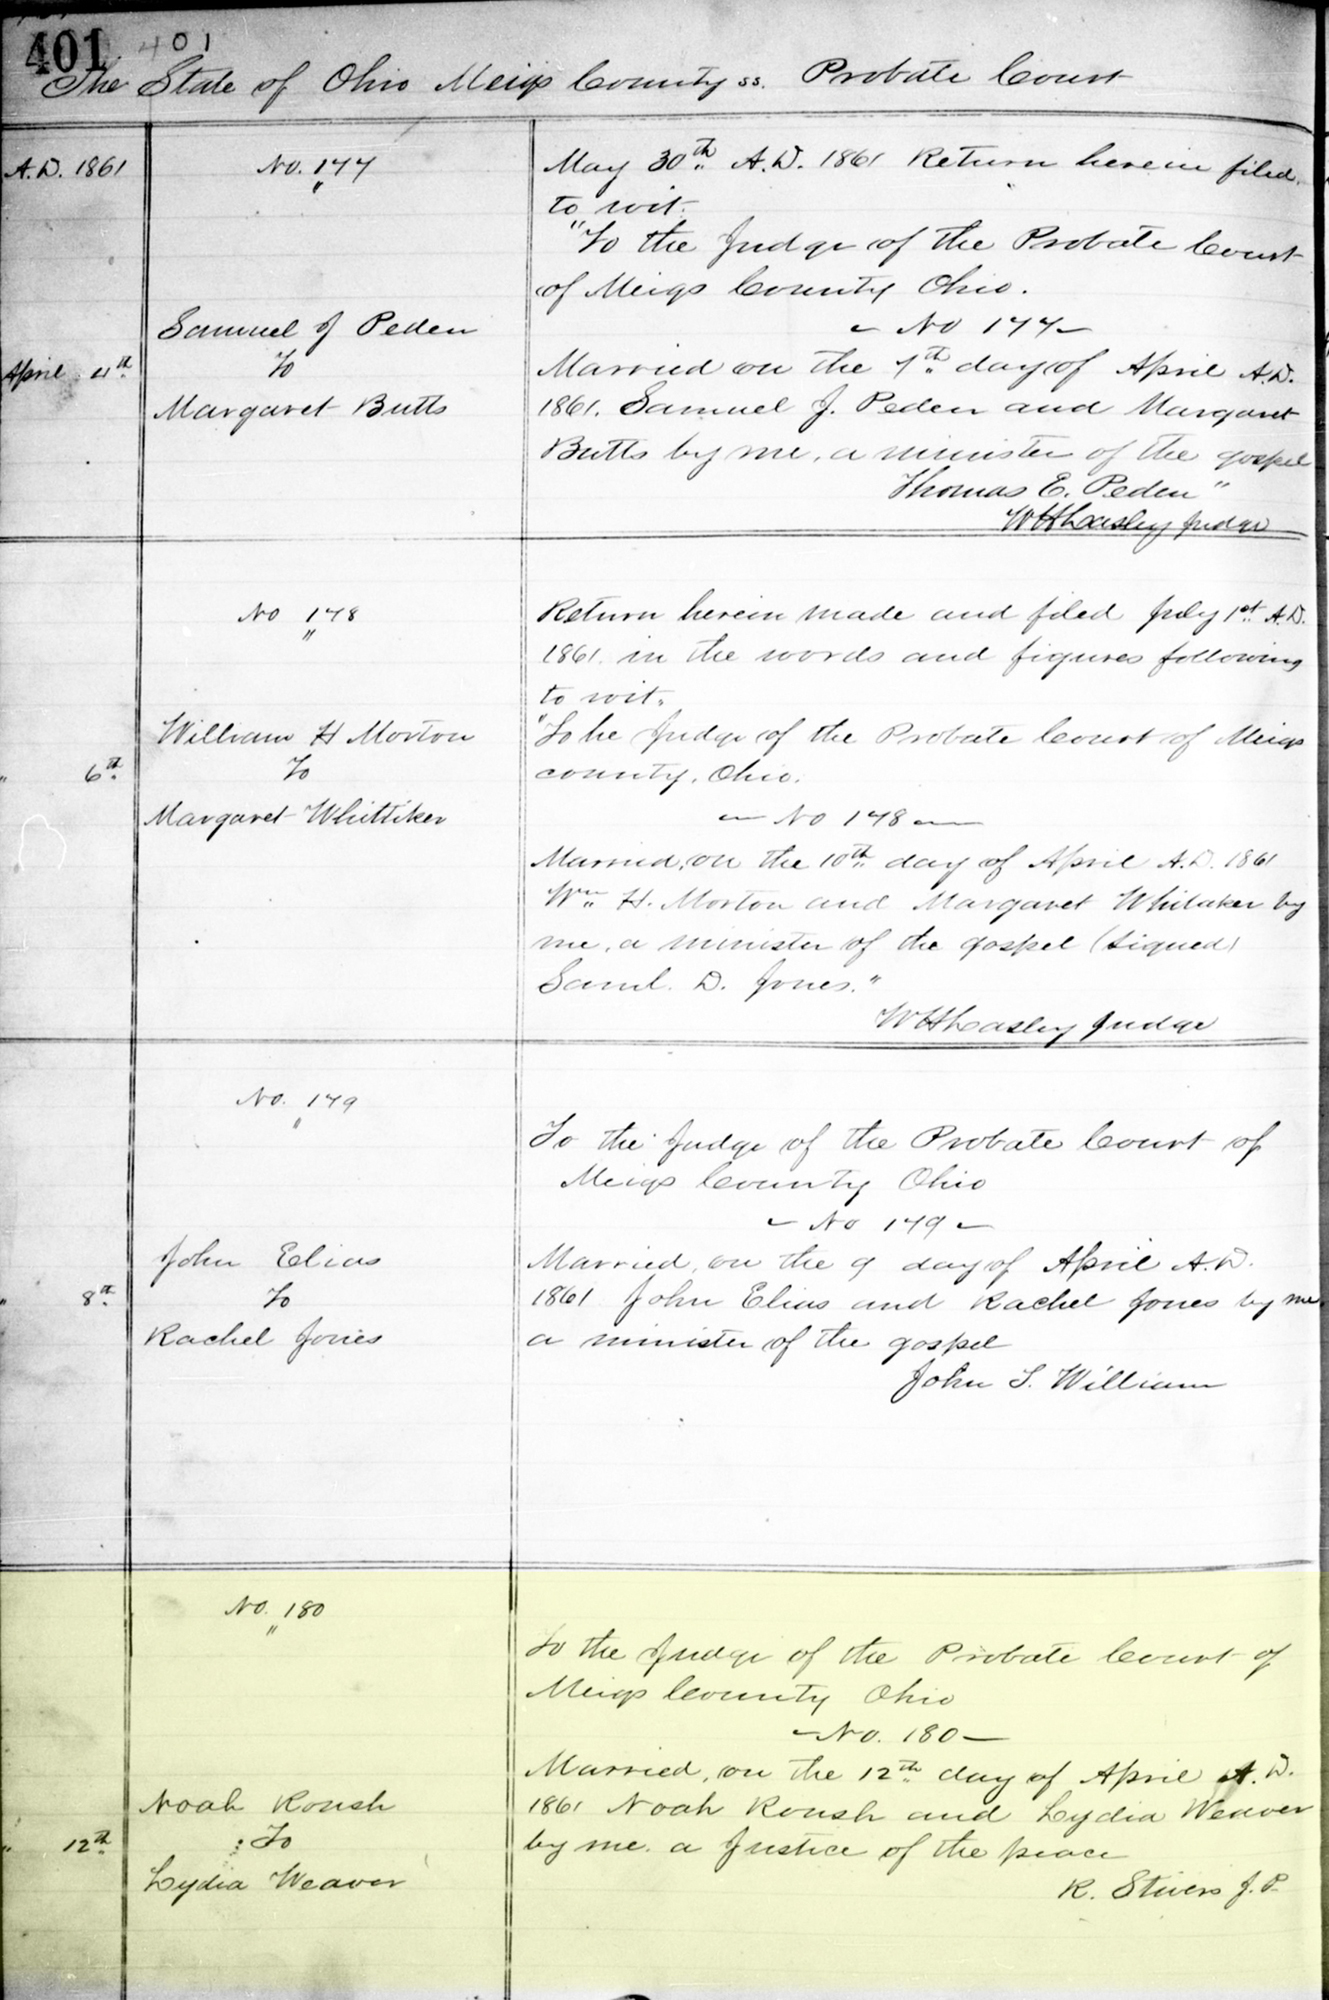 401 401
The State of Ohio Meigs County ss. Probate Court
A.D. 1861
No. 177
"
April 4th
Samuel J Peden
To
Margaret Butts
May 30th A.D. 1861 Return herein filed.
to wit.
"To the Judge of the Probate Court
of Meigs County Ohio.
– No 177 –
Married on the 7th day of April A.D.
1861. Samuel J. Peden and Margaret
Butts by me, a minister of the gospel
Thomas E. Peden"
WH Lasley Judge
No 178
"
" 6th
William H Morton
To
Margaret Whittiker
Return herein made and filed July 1st A.D.
1861. in the words and figures following
to wit.
"To he Judge of the Probate Court of Meigs
county, Ohio.
– No 178 –
Married, on the 10th day of April A.D. 1861
Wm H. Morton and Margaret Whitaker by
me, a minister of the gospel (signed)
Saml. D. Jones."
WH Lasley Judge
No. 179
"
" 8th
John Elias
To
Rachel Jones
To the Judge of the Probate Court of
Meigs County Ohio
– No 179 –
Married, on the 9 day of April A.D.
1861 John Elias and Rachel Jones by me,
a minister of the gospel
John T. William
No. 180
"
" 12th
Noah Roush
: To
Lydia Weaver
To the Judge of the Probate Court of
Meigs County Ohio
– No. 180 –
Married, on the 12th day of April A.D.
1861 Noah Roush and Lydia Weaver
by me. a Justice of the peace
R. Stivers J.P.